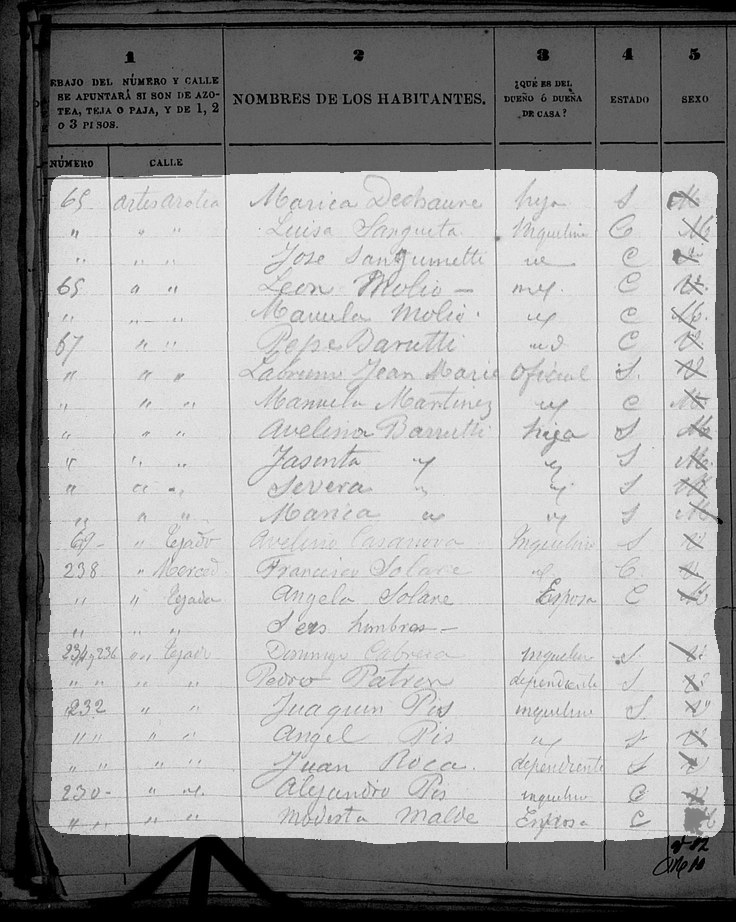 1 2 3 4 5
EBAJO DEL NÚMERO Y CALLE
SE APUNTARÁ SI SON DE AZO-
TEA, TEJA O PAJA, Y DE 1, 2
O 3 PISOS.
NOMBRES DE LOS HABITANTES.
¿QUÉ ES DEL
DUEÑO Ó DUEÑA
DE CASA?
ESTADO
SEXO
NÚMERO CALLE
65 artes Marica Dechaure hija S M
" " " Luisa Inquilino C M
" " " Jose Sanguinetti C V
65 " " Leon Molio — C V
" " " Manuela Molio C M
67 " " Pepe Barutti C V
" " " Jean Marie Oficial S. V
" " " Manuela Martinez C M
" " " Avelina Barrutti hija S M
" " " Jasenta " " S M
" " " Severa " " S M
" " " Marica " " S M
69 - " Tejado Avelino Casanova Inquilino S V
238 " Merced Francisco Solare " C. V
" " Tejada Angela Solare Esposa C M
" " " Seis hombres —
234 y 236 " " Tejado Domingo Cabrera inquilino S V
" " " " Pedro Patron dependiente S V
232 " " Juaquin Pis inquilino S. V
" " " " Angel Pis " S V
" " " " Juan Roca. dependiente S V
230 - " " Alejandro Pis inquilino C V
" " " " Modesta Malde Esposa C M
V 12
M 10